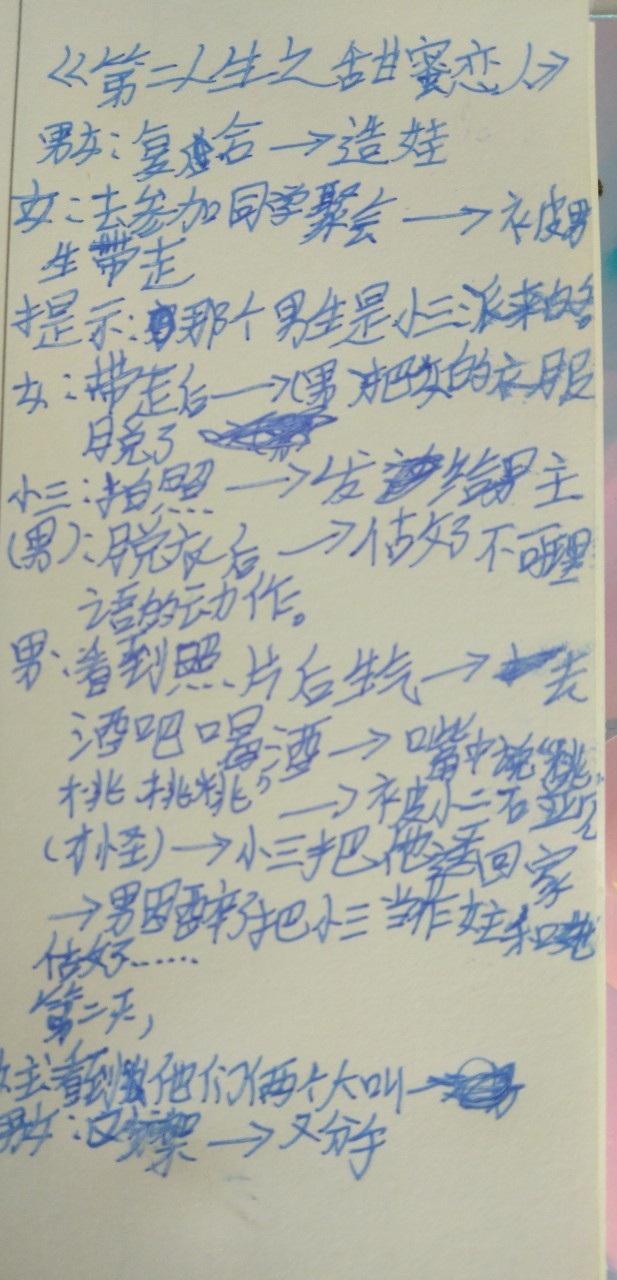 《第二人生之甜蜜恋人》
男女：复合→造娃
女：去参加同学聚会→被男
生带走
提示：那个男生是小三派来的。
女：带走后→(男)把女的衣服
脱了
小三：拍照→发给男主
(男)：脱衣后→做了不可
之语的动作。
男：看到照片后生气→去
酒吧喝酒→嘴中说“桃
桃桃”→被小三
(才怪)→小三把他诱回家
→男因醉了把小三当作女主和她
做了……
第二天，
女主看到他们俩个大叫→
男女：又吵架→又分手